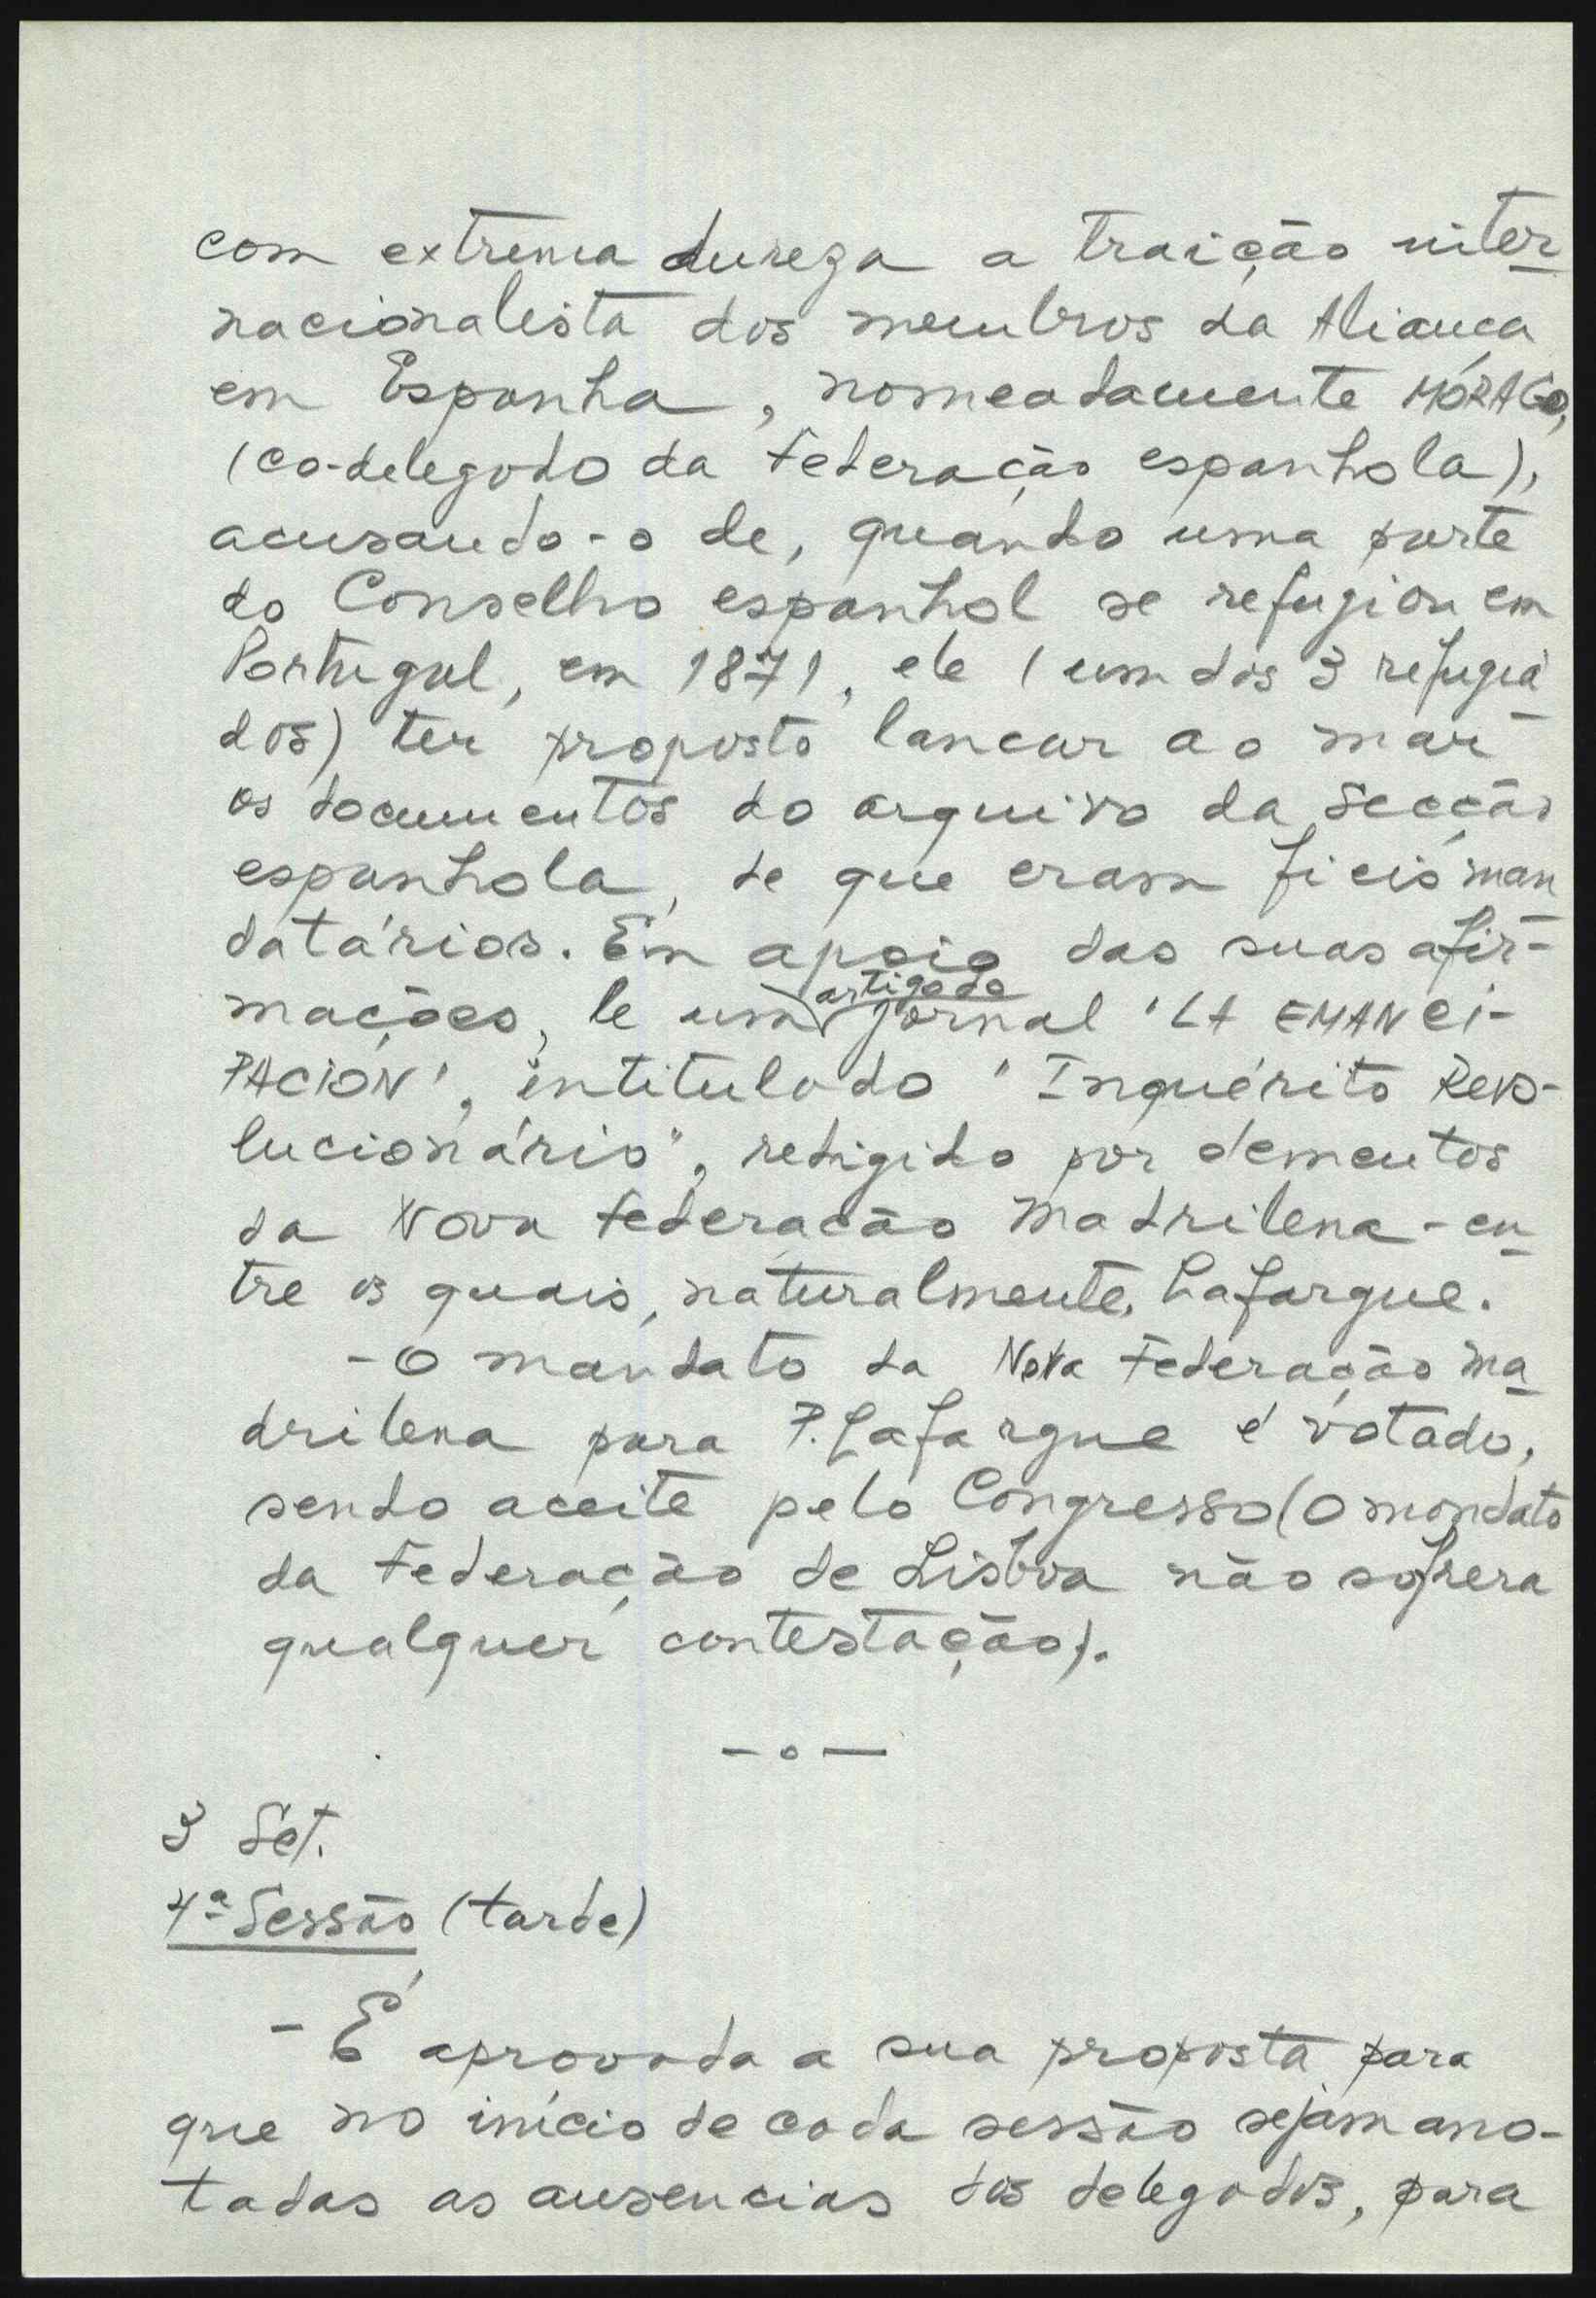 com extrema dureza a traição inter
nacionalista dos membros da Aliança
em Espanha, nomeadamente MÓRAGO,
(co-delegado da Federação espanhola),
acusando-o de, quando uma parte
do Conselho espanhol se refugiou em
Portugal, em 1871, ele (um dos 3 refugia
dos) ter proposto lançar ao mar
os documentos do arquivo da Secção
espanhola, de que eram fieis man
datários. Em apoio das suas afir-
mações, le um artigo do jornal 'LA EMANCI-
PACIÓN', intitulado 'Inquérito Revo-
lucionário", redigido por elementos
da Nova Federação Madrilena - en
tre os quais, naturalmente, Lafargue.
- O mandato da Nova Federação Ma
drilena para P. Lafargue é votado,
sendo aceite pelo Congresso (O mandato
da Federação de Lisboa não sofrera
qualquer contestação).
- o -
3 Set.
4ª Sessão (tarde)
- É aprovada a sua proposta para
que no início de cada sessão sejam ano-
tadas as ausencias dos delegados, para